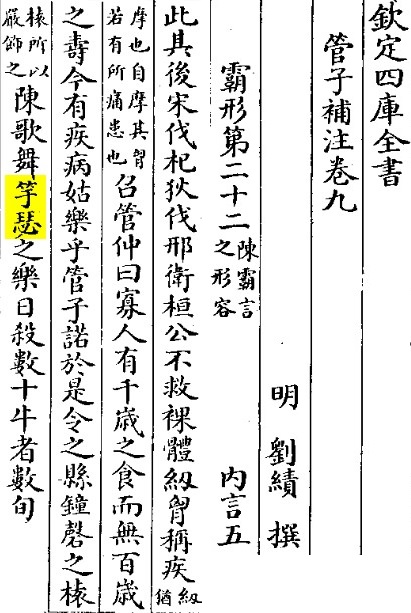 欽定四庫全書
管子補注卷九
明 劉績 撰
霸形第二十二 陳霸言之形容 內言五
此其後宋伐杞狄伐邢衛桓公不救裸體紉胷稱疾紉猶
摩也自摩其胷若有所痛患也召管仲曰寡人有千歲之食而無百歲
之壽今有疾病姑樂乎管子諾於是令之縣鐘磬之榬
榬所以嚴飾之陳歌舞竽瑟之樂日殺數十牛者數旬